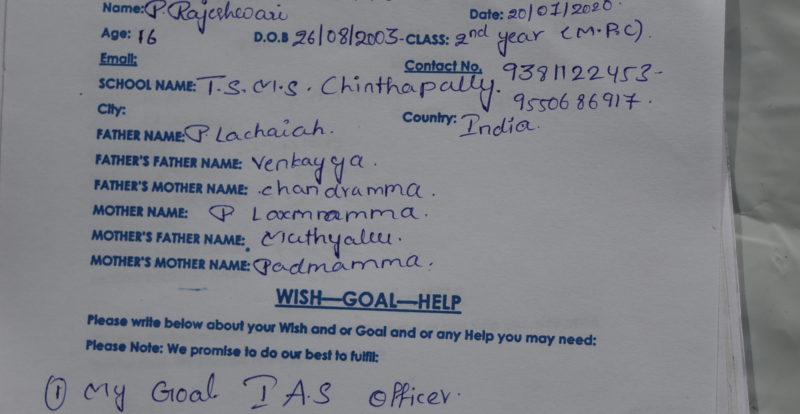 Name: P. Rajeshewari Date: 20/01/2020
Age: 16 D.O.B 26/08/2003 - CLASS: 2nd year (M.P.C).
Email: Contact No. 9381122453-
SCHOOL NAME: T.S.M.S. Chinthapally. 9550686917.
City: Country: India.
FATHER NAME: P Lachaiah.
FATHER'S FATHER NAME: Venkayya.
FATHER'S MOTHER NAME: chandramma.
MOTHER NAME: P Laxmramma.
MOTHER'S FATHER NAME: Muthyalu.
MOTHER'S MOTHER NAME: Padmamma.
WISH—GOAL—HELP
Please write below about your Wish and or Goal and or any Help you may need:
Please Note: We promise to do our best to fulfil:
① My Goal I A.S officer.